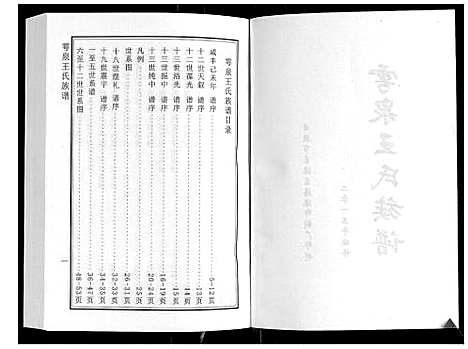 雩泉王氏族谱目录
咸丰己未年 谱序 5-12页
十二世天叙 谱序 13页
十二世葆光 谱序 14页
十三世浴光 谱序 15页
十三世振中 谱序 16-19页
十三世纯中 谱序 20-24页
凡例 25页
世系图 26-31页
十八世煜礼 谱序 32-33页
十九世嘉宇 谱序 34-35页
一至五世系谱 36-47页
六至十二世世系图 48-53页
雩泉王氏族谱
一
雩泉王氏族谱
二零一五年